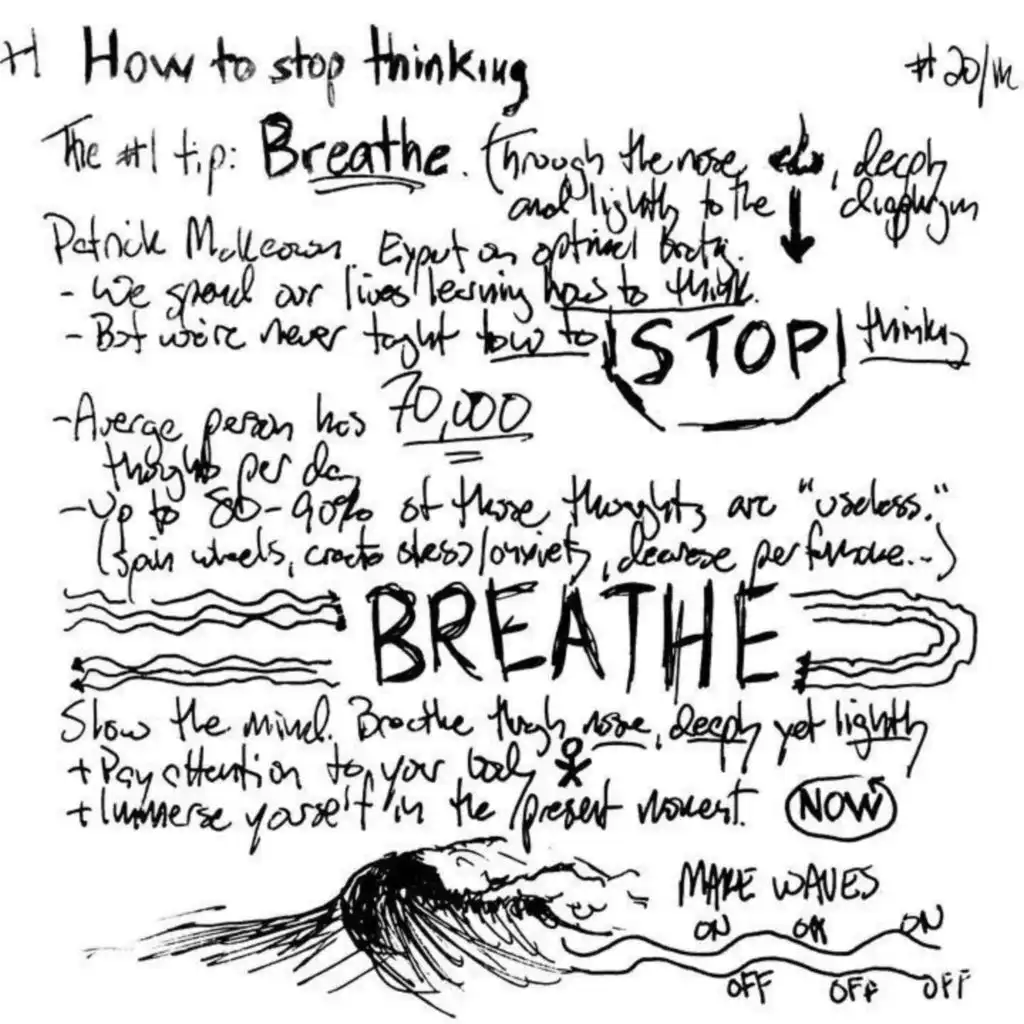 +1 How to stop thinking
#20/
The #1 tip: Breathe. (Through the nose, deeply
and lightly to the diaphragm
Patrick McKeown. Expert on optimal
- We spend our lives learning how to think.
- But we're never taught how to STOP thinking
- Average person has 70,000
thoughts per day
- Up to 80-90% of those thoughts are "useless."
(spin wheels, create stress/anxiety, decrease performance...)
BREATHE
Slow the mind. Breathe through nose, deeply yet lightly
+ Pay attention to your body
+ Immerse yourself in the present moment. NOW
MAKE WAVES
ON ON ON
OFF OFF OFF